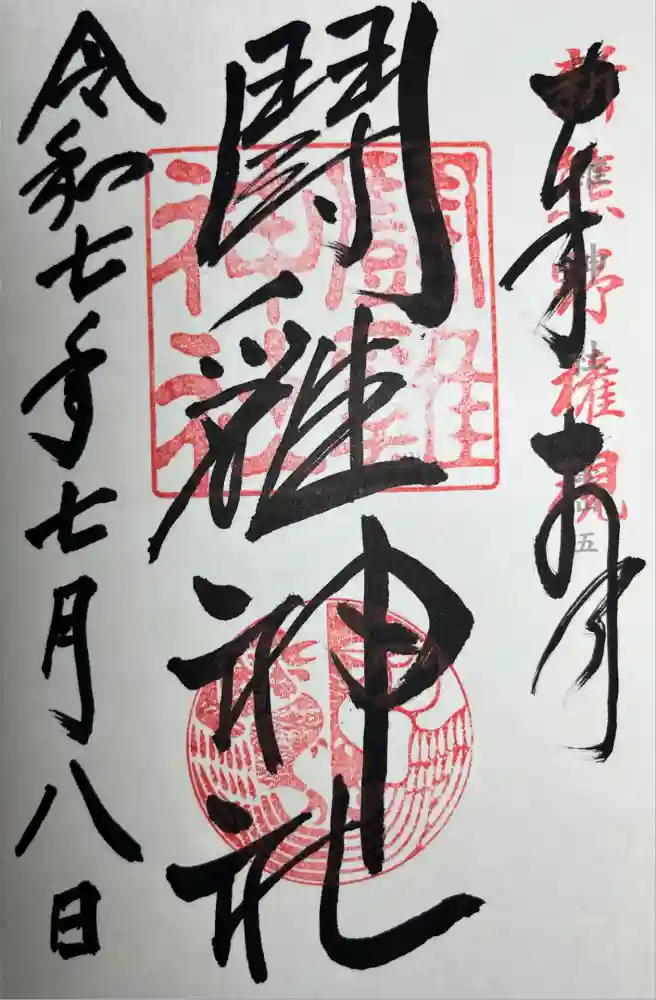 奉拝
新熊野權現
鬪雞神社
鬪雞
神社
令和七年七月八日